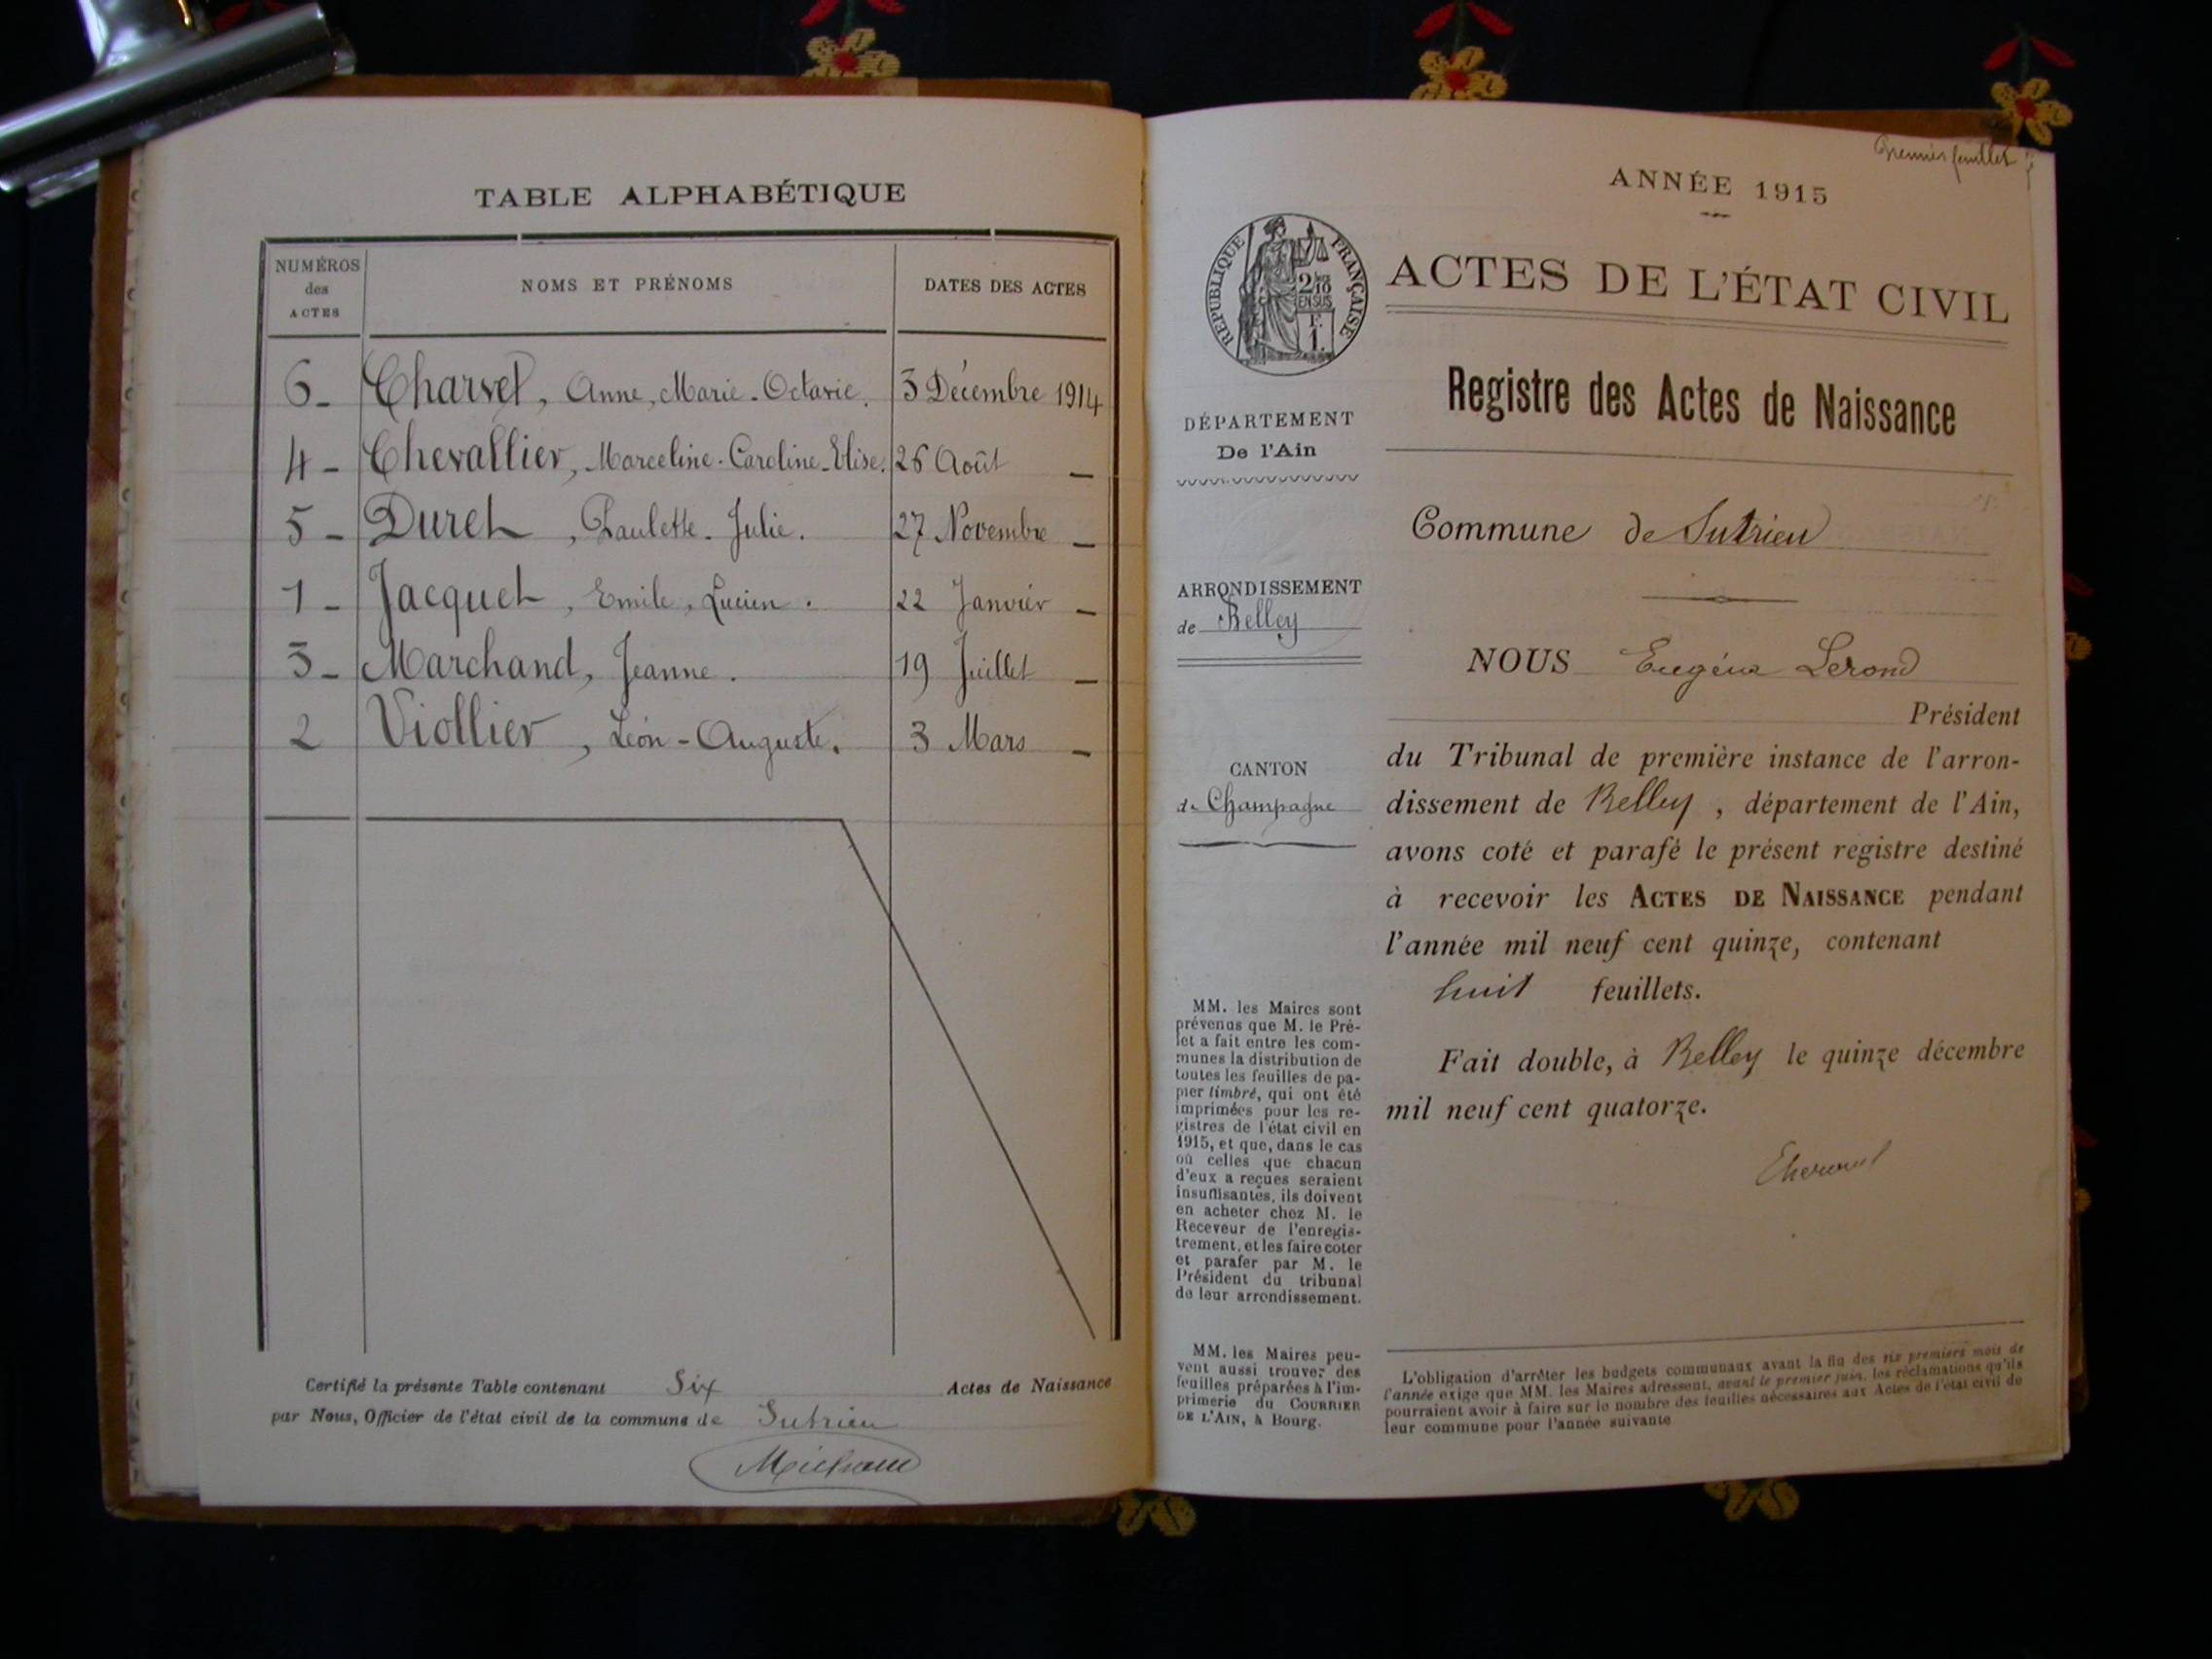 TABLE ALPHABÉTIQUE
NUMÉROS des ACTES
NOMS ET PRÉNOMS
DATES DES ACTES
6 - Charvet, Anne, Marie - Octavie. 3 Décembre 1914
4 - Chevallier, Marceline - Caroline - Elise. 26 Août —
5 - Duret, Paulette - Julie. 27 Novembre —
1 - Jacquet, Emile, Lucien. 22 Janvier —
3 - Marchand, Jeanne. 19 Juillet —
2 Viollier, Léon - Auguste. 3 Mars —
Certifié la présente Table contenant Six Actes de Naissance
par Nous, Officier de l'état civil de la commune de Sutrieu
Premier feuillet
ANNÉE 1915
RÉPUBLIQUE FRANÇAISE
2/10
EN SUS
F.
1.
ACTES DE L'ÉTAT CIVIL
Registre des Actes de Naissance
DÉPARTEMENT
De l'Ain
ARRONDISSEMENT
de Belley
CANTON
de Champagne
MM. les Maires sont
prévenus que M. le Pré-
fet a fait entre les com-
munes la distribution de
toutes les feuilles de pa-
pier timbré, qui ont été
imprimées pour les re-
gistres de l'état civil en
1915, et que, dans le cas
où celles que chacun
d'eux a reçues seraient
insuffisantes, ils doivent
en acheter chez M. le
Receveur de l'enregis-
trement, et les faire coter
et parafer par M. le
Président du tribunal
de leur arrondissement.
MM. les Maires peu-
vent aussi trouver des
feuilles préparées à l'im-
primerie du COURRIER
DE L'AIN, à Bourg.
Commune de Sutrieu
NOUS Eugène Lerond
Président
du Tribunal de première instance de l'arron-
dissement de Belley, département de l'Ain,
avons coté et parafé le présent registre destiné
à recevoir les ACTES DE NAISSANCE pendant
l'année mil neuf cent quinze, contenant
huit feuillets.
Fait double, à Belley le quinze décembre
mil neuf cent quatorze.
L'obligation d'arrêter les budgets communaux avant la fin des six premiers mois de
l'année exige que MM. les Maires adressent, avant le premier juin, les réclamations qu'ils
pourraient avoir à faire sur le nombre des feuilles nécessaires aux Actes de l'état civil de
leur commune pour l'année suivante